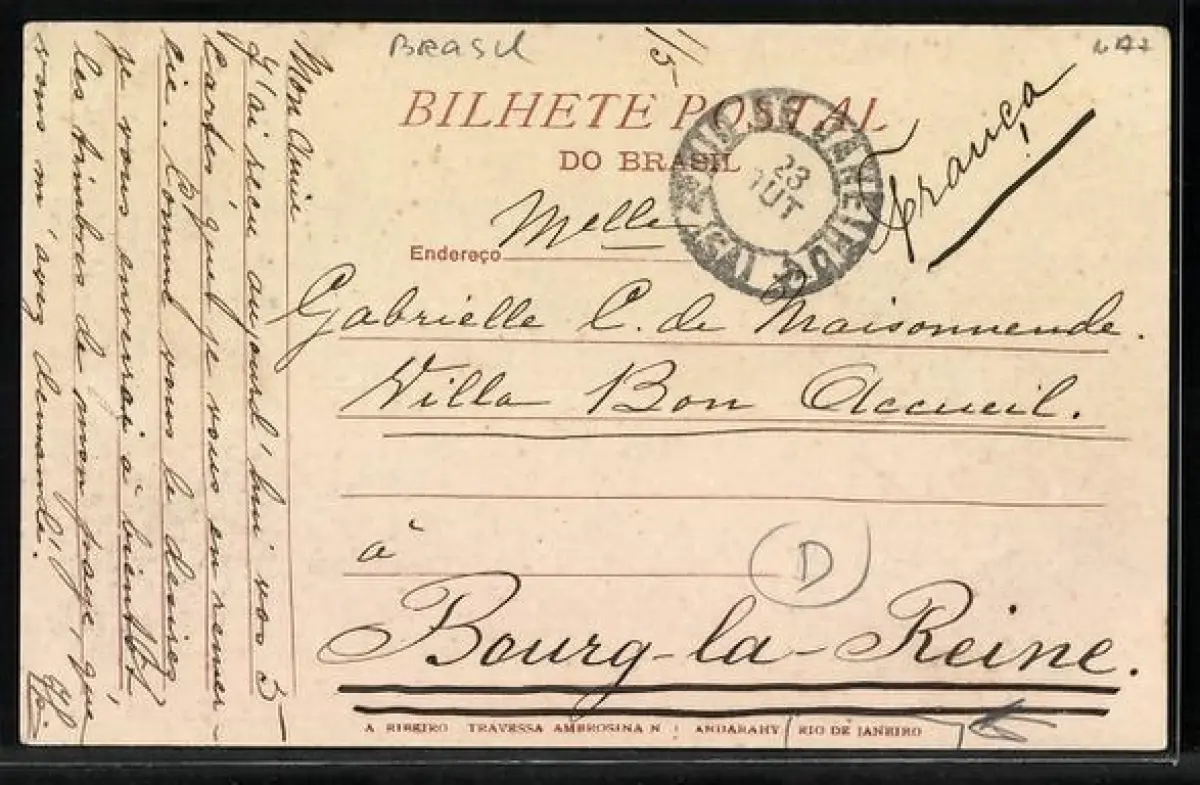 BRASIL
1/5
BILHETE POSTAL
DO BRASIL
França
23
OUT
Melle
Endereço
Gabrielle C. de Maisonneude.
Villa Bon Accueil.
à
D
Bourg-la-Reine.
A RIBEIRO TRAVESSA AMBROSINA N 1 ANDARAHY RIO DE JANEIRO
Mon Amie
J'ai reçu aujourd'hui vos 3
cartes, que je vous en remer-
cie. Comme vous le desirez
je vous enverrai à bientôt,
les timbres de mon pays, que
vous m'avez demandé.